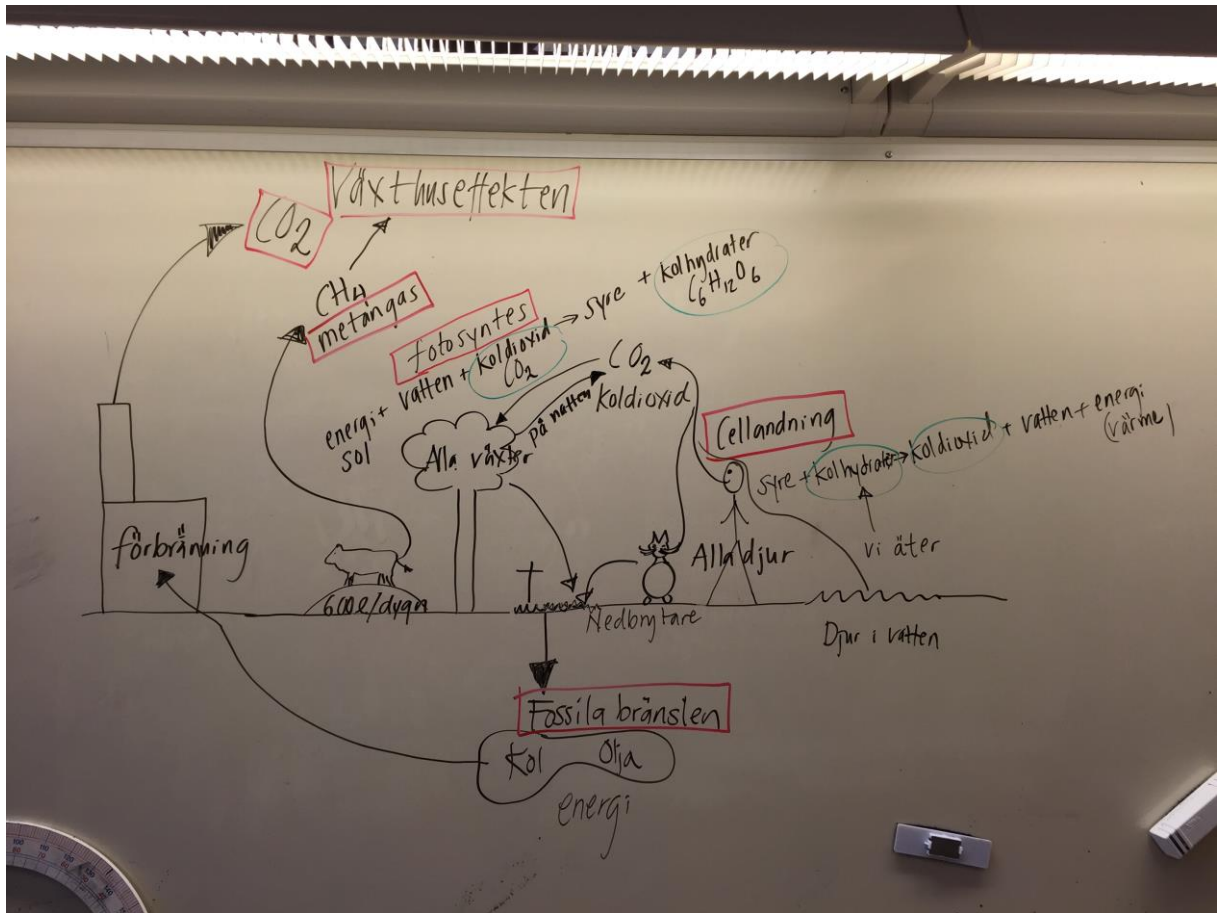 Växthuseffekten
CO2
CH4
metångas
fotosyntes
energi + vatten + koldioxid → syre + kolhydrater
sol
CO2
C6H12O6
CO2
koldioxid
på natten
Alla växter
Cellandning
syre + kolhydrater → koldioxid + vatten + energi
(värme)
vi äter
Alla djur
förbränning
600l/dygn
Nedbrytare
Djur i vatten
Fossila bränslen
Kol
Olja
energi